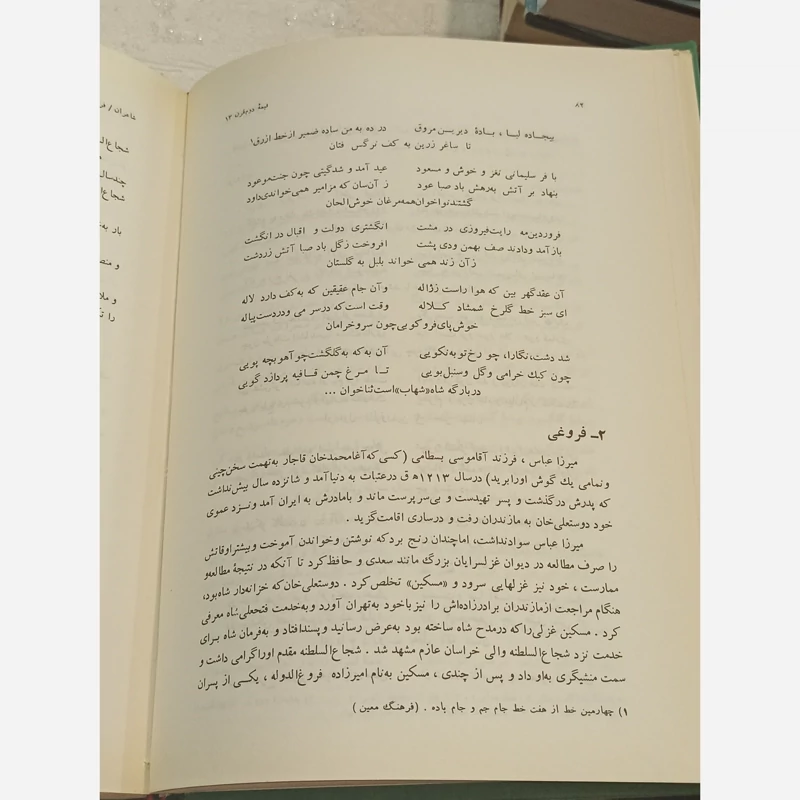 ۸۲
نیمهٔ دوم قرن ۱۳
شاعران / فر
بیجاده لبا ، بادهٔ دیریـن مروق در ده به من ساده ضمیر از خط ازرق¹
تا ساغر زرین به کف نرگس فتان
با فر سلیمانی نغز و خوش و مسعود عید آمد و شد گیتی چون جنت موعود
بنهاد بر آتش به رهش باد صبا عود ز آن‌سان که مزامیر همی‌خواندی داود
گشتند نواخوان همه مرغان خوش‌الحان
فروردین‌مه رایت فیروزی در مشت انگشتری دولت و اقبال در انگشت
باز آمد و دادند صف بهمن و دی پشت افروخت ز گل باد صبا آتش زردشت
ز آن زند همی خواند بلبل به گلستان
آن عقد گهر بین که هوا راست ز ژاله وآن جام عقیقین که به کف دارد لاله
ای سبز خط گلرخ شمشاد کـلاله وقت است که در سر می و در دست پیاله
خوش پای‌فروکوبی چون سرو خرامان
شد دشت، نگارا، چو رخ تو به نکویی آن به که به گلگشت چو آهو بچه پویی
چون کبک خرامی و گل و سنبل بویی تـا مـرغ چمن قـافیه پردازد گویی
در بارگه شاه «شهاب» است ثناخوان ...
۲ـ فروغی
میرزا عباس ، فرزند آقاموسی بسطامی (کسی که آغامحمدخان قاجار به تهمت سخن‌چینی
و نمامی یك گوش او را برید) در سال ۱۲۱۳ ه‍ ق در عتبات به دنیا آمد و شانزده سال بیش نداشت
که پدرش درگذشت و پسر تهیدست و بی‌سرپرست ماند و با مادرش به ایران آمد و نـزد عموی
خود دوستعلی‌خان به مازندران رفت و در ساری اقامت گزید .
میرزا عباس سواد نداشت، اما چندان رنج برد که نوشتن و خواندن آموخت و بیشتر اوقاتش
را صرف مطالعه در دیوان غزلسرایان بزرگ مانند سعدی و حافظ کرد تا آنکه در نتیجهٔ مطالعه و
ممارست ، خود نیز غزلهایی سرود و «مسکین» تخلص کرد . دوستعلی‌خان که خزانه‌دار شاه بود،
هنگام مراجعت از مازندران برادرزاده‌اش را نیز با خود به تهران آورد و به خدمت فتحعلی شاه معرفی
کرد . مسکین غزلی را که در مدح شاه ساخته بود به عرض رسانید و پسند افتاد و به فرمان شاه برای
خدمت نزد شجاع‌السلطنه والی خراسان عازم مشهد شد . شجاع‌السلطنه مقدم او را گرامی داشت و
سمت منشیگری به او داد و پس از چندی ، مسکین به نام امیرزاده فروغ‌الدوله ، یکی از پسران
۱) چهارمین خط از هفت خط جام جم و جام باده . (فرهنگ معین )
شجاع‌الس
چند سال
شجاع‌ال
باد به‌خ
و منص
و ملا
را تک